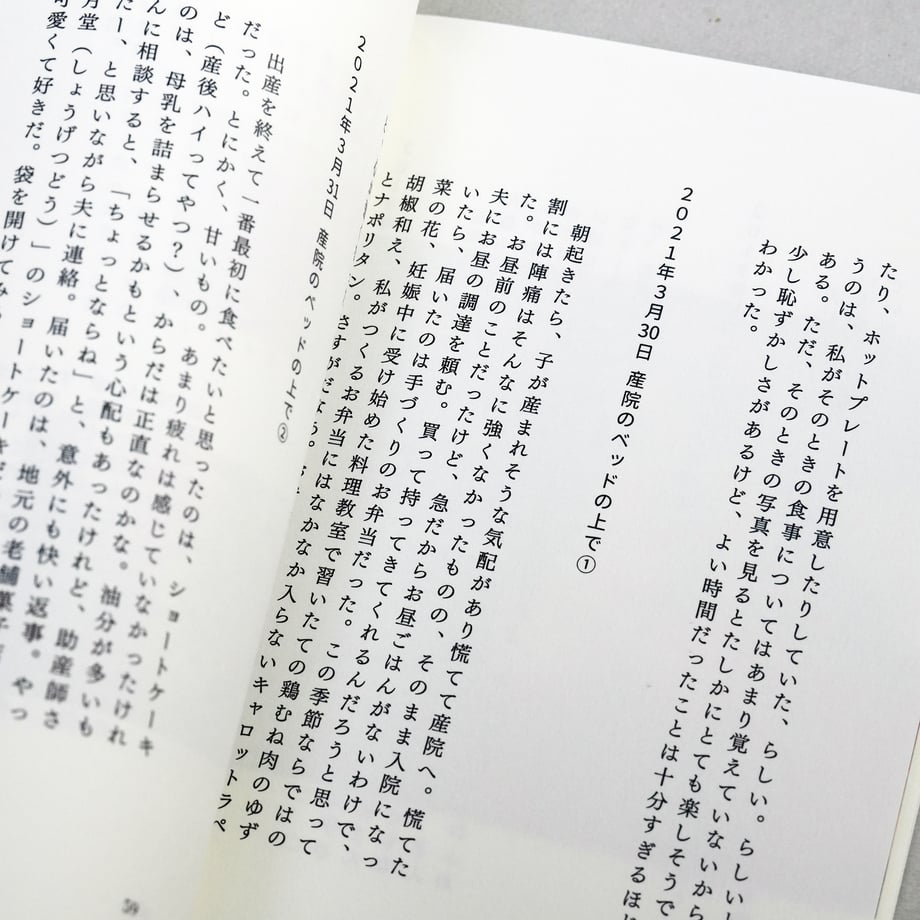 たり、ホットプレートを用意したりしていた、らしい。らしいと
うのは、私がそのときの食事についてはあまり覚えていないから
ある。ただ、そのときの写真を見るとたしかにとても楽しそうで
少し恥ずかしさがあるけど、よい時間だったことは十分すぎるほど
わかった。
2021年3月30日 産院のベッドの上で①
朝起きたら、子が産まれそうな気配があり慌てて産院へ。慌てた
割には陣痛はそんなに強くなかったものの、そのまま入院になっ
た。お昼前のことだったけど、急だからお昼ごはんがないわけで、
夫にお昼の調達を頼む。買って持ってきてくれるんだろうと思って
いたら、届いたのは手づくりのお弁当だった。この季節ならではの
菜の花、妊娠中に受け始めた料理教室で習いたての鶏むね肉のゆず
胡椒和え、私がつくるお弁当にはなかなか入らないキャロットラペ
とナポリタン。さすがだなぁ。
2021年3月31日 産院のベッドの上で②
出産を終えて一番最初に食べたいと思ったのは、ショートケーキ
だった。とにかく、甘いもの。あまり疲れは感じていなかったけれ
ど（産後ハイってやつ？）、からだは正直なのかな。油分が多いも
のは、母乳を詰まらせるかもという心配もあったけれど、助産師さ
んに相談すると、「ちょっとならね」と、意外にも快い返事。やっ
たー、と思いながら夫に連絡。届いたのは、地元の老舗菓子
月堂（しょうげつどう）」のショートケーキだ
可愛くて好きだ。袋を開けてみ
59